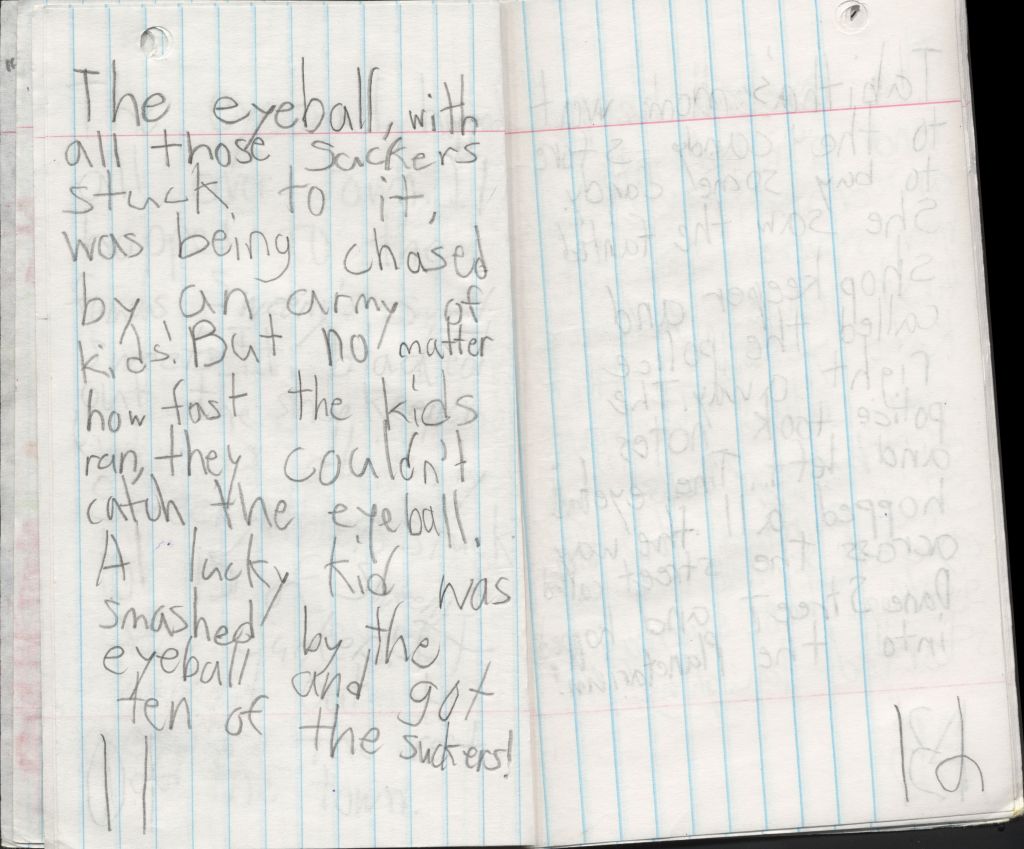 The eyeball, with
all those suckers
stuck to it,
was being chased
by an army of
kids! But no matter
how fast the kids
ran, they couldn't
catch the eyeball.
A lucky kid was
smashed by the
eyeball and got
ten of the suckers!
11
12